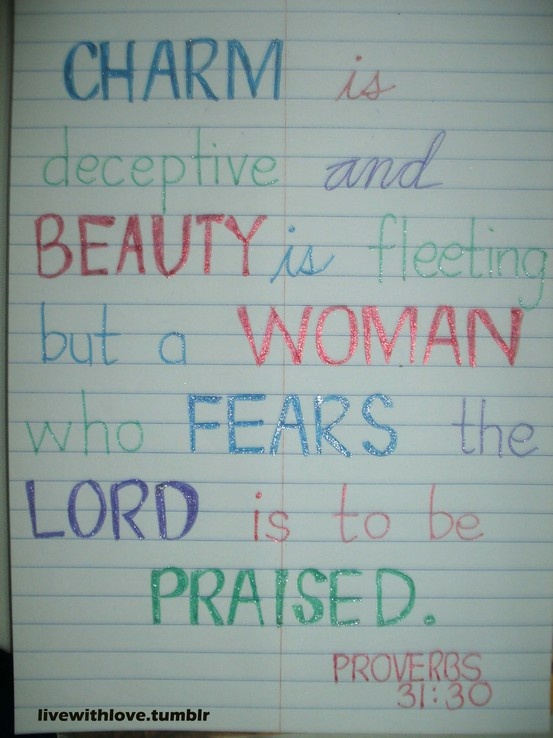 CHARM is
deceptive and
BEAUTY is fleeting
but a WOMAN
who FEARS the
LORD is to be
PRAISED.
PROVERBS
31:30
livewithlove.tumblr